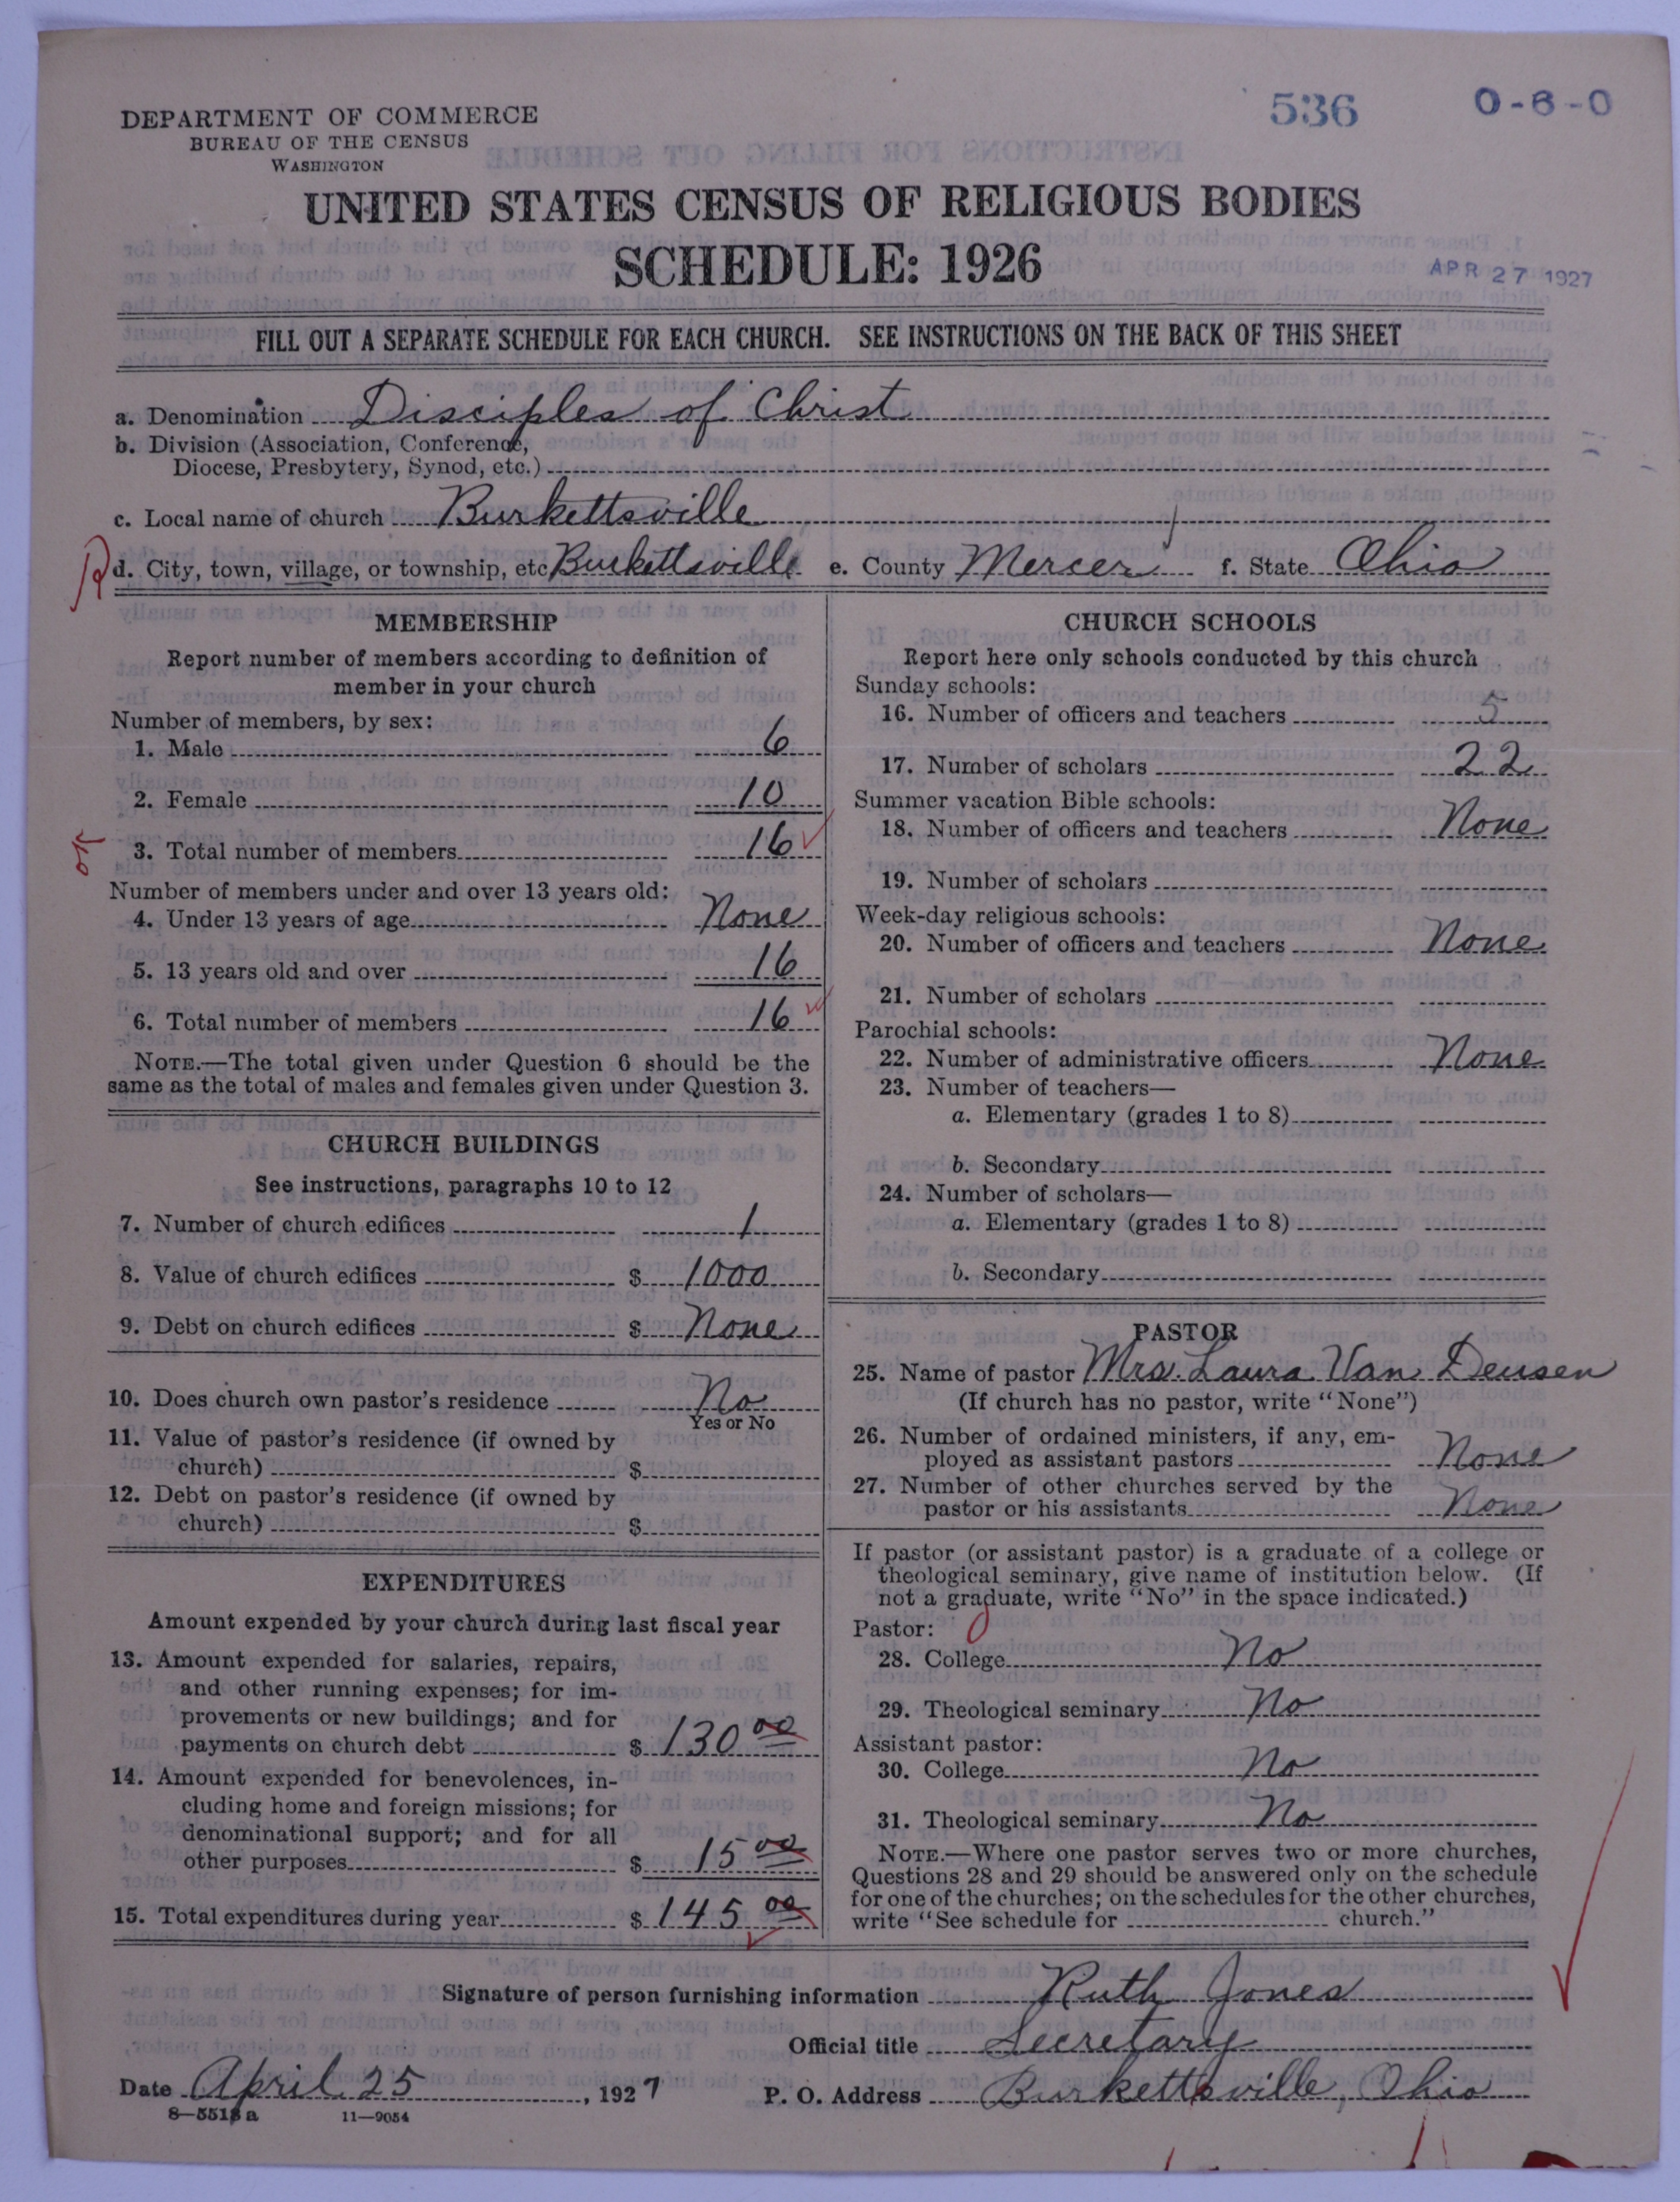 DEPARTMENT OF COMMERCE
BUREAU OF THE CENSUS
WASHINGTON
536
0-6-0
UNITED STATES CENSUS OF RELIGIOUS BODIES
SCHEDULE: 1926
APR 27 1927
FILL OUT A SEPARATE SCHEDULE FOR EACH CHURCH. SEE INSTRUCTIONS ON THE BACK OF THIS SHEET
a. Denomination Disciples of Christ
b. Division (Association, Conference,
Diocese, Presbytery, Synod, etc.)
c. Local name of church Burkettsville
R d. City, town, village, or township, etc Burkettsville e. County Mercer f. State Ohio
MEMBERSHIP
Report number of members according to definition of
member in your church
Number of members, by sex:
1. Male 6
2. Female 10
3. Total number of members 16
Number of members under and over 13 years old:
4. Under 13 years of age None
5. 13 years old and over 16
6. Total number of members 16
NOTE.—The total given under Question 6 should be the
same as the total of males and females given under Question 3.
CHURCH BUILDINGS
See instructions, paragraphs 10 to 12
7. Number of church edifices 1
8. Value of church edifices $ 1000
9. Debt on church edifices $ None
10. Does church own pastor's residence No
Yes or No
11. Value of pastor's residence (if owned by
church) $
12. Debt on pastor's residence (if owned by
church) $
EXPENDITURES
Amount expended by your church during last fiscal year
13. Amount expended for salaries, repairs,
and other running expenses; for im-
provements or new buildings; and for
payments on church debt $ 130 00
14. Amount expended for benevolences, in-
cluding home and foreign missions; for
denominational support; and for all
other purposes $ 15 00
15. Total expenditures during year $ 145 00
CHURCH SCHOOLS
Report here only schools conducted by this church
Sunday schools:
16. Number of officers and teachers 5
17. Number of scholars 22
Summer vacation Bible schools:
18. Number of officers and teachers None
19. Number of scholars
Week-day religious schools:
20. Number of officers and teachers None
21. Number of scholars
Parochial schools:
22. Number of administrative officers None
23. Number of teachers—
a. Elementary (grades 1 to 8)
b. Secondary
24. Number of scholars—
a. Elementary (grades 1 to 8)
b. Secondary
PASTOR
25. Name of pastor Mrs. Laura Van Deusen
(If church has no pastor, write "None")
26. Number of ordained ministers, if any, em-
ployed as assistant pastors None
27. Number of other churches served by the
pastor or his assistants None
If pastor (or assistant pastor) is a graduate of a college or
theological seminary, give name of institution below. (If
not a graduate, write "No" in the space indicated.)
Pastor: 0
28. College No
29. Theological seminary No
Assistant pastor:
30. College No
31. Theological seminary No
NOTE.—Where one pastor serves two or more churches,
Questions 28 and 29 should be answered only on the schedule
for one of the churches; on the schedules for the other churches,
write "See schedule for church."
Signature of person furnishing information Ruth Jones
Official title Secretary
Date April 25, 1927 P. O. Address Burkettsville, Ohio
8—5518 a 11—9054